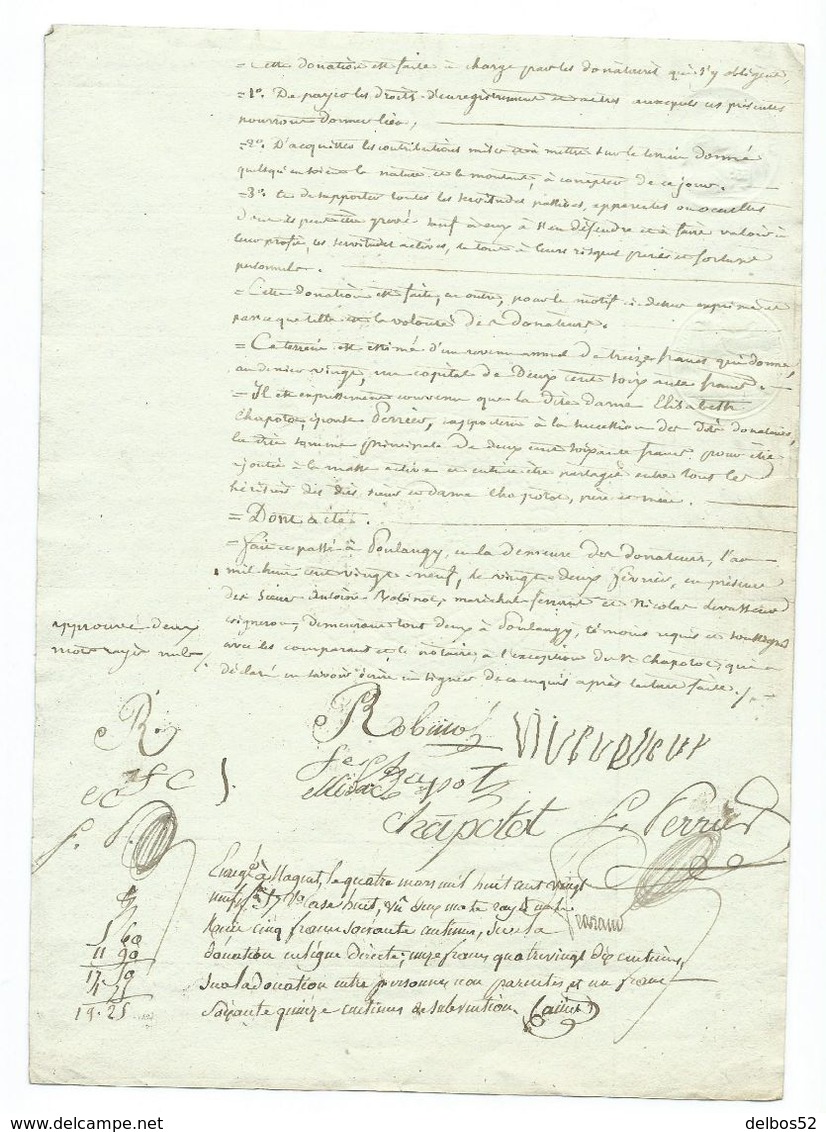 = Cette donation est faite à charge par les donataires qui s'y obligent,
= 1°. De payer les droits d'enregistrement et autres auxquels ces présentes
pourront donner lieu,
= 2°. D'acquitter les contributions mises et à mettre sur le terrein donné
quelqu'en soient la nature et le montant, à compter de ce jour.
= 3°. Et de supporter toutes les servitudes passives, apparentes ou occultes
dont il peut être grevé sauf à eux à s'en défendre et à faire valoir à
leur profit, les servitudes actives, le tout à leurs risques périls et fortune
personnels.
= Cette donation est faite, en outre, pour le motif ci-dessus exprimé et
parceque telle est la volonté des donateurs.
= Ce terrein est estimé d'un revenu annuel de treize francs qui donne,
au denier vingt, un capital de deux cent soixante francs.
= Il est expressément convenu que la dite dame Elisabeth
Chapotot, épouse Perrier, rapportera à la succession des dits donateurs,
la dite somme principale de deux cent soixante francs pour être
ajoutée à la masse active et ensuite être partagée entre tous les
héritiers des dits sieur et dame Chapotot, père et mère.
= Dont acte.
= Fait et passé à Poulangy, en la demeure des donateurs, l'an
mil huit cent vingt-neuf, le vingt-deux février, en présence
des Sieurs Antoine Robinot, maréchal ferrant et Nicolas
vigneron, demeurant tout deux à Poulangy, témoins requis et soussignés
avec les comparant et le notaire, à l'exception du Sr Chapotot, qui a
déclaré ne savoir écrire ni signer de ce enquis après lecture faite./.
approuvé deux
mots rayés nuls
R
Robinot
fe Chapotot
ec fe C
Chapotot
f. Perrier
f. P.
Enregé à Nogent, le quatre mars mil huit cent vingt
neuf, f° 57 V° case huit, vu deux mots rayés nuls
Reçu cinq francs soixante centimes, sur la
donation en ligne directe; onze francs quatre vingt dix centimes,
sur la donation entre personnes non parentes et un franc
soixante quinze centimes de subvention.
5 60
11 90
17. 50
1 75
19. 25
delcampe.net
delbos52